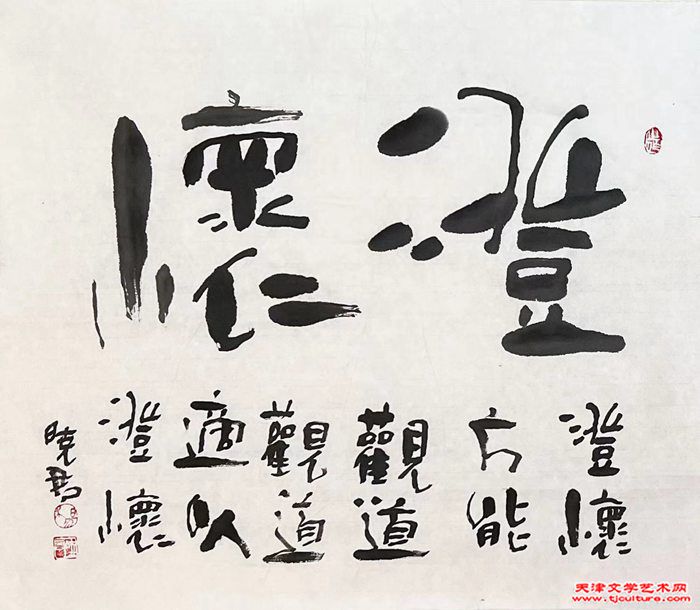 澄懷
澄懷
方能
觀道
觀道
適以
澄懷
曉君
天津文学艺术网
www.tjculture.com